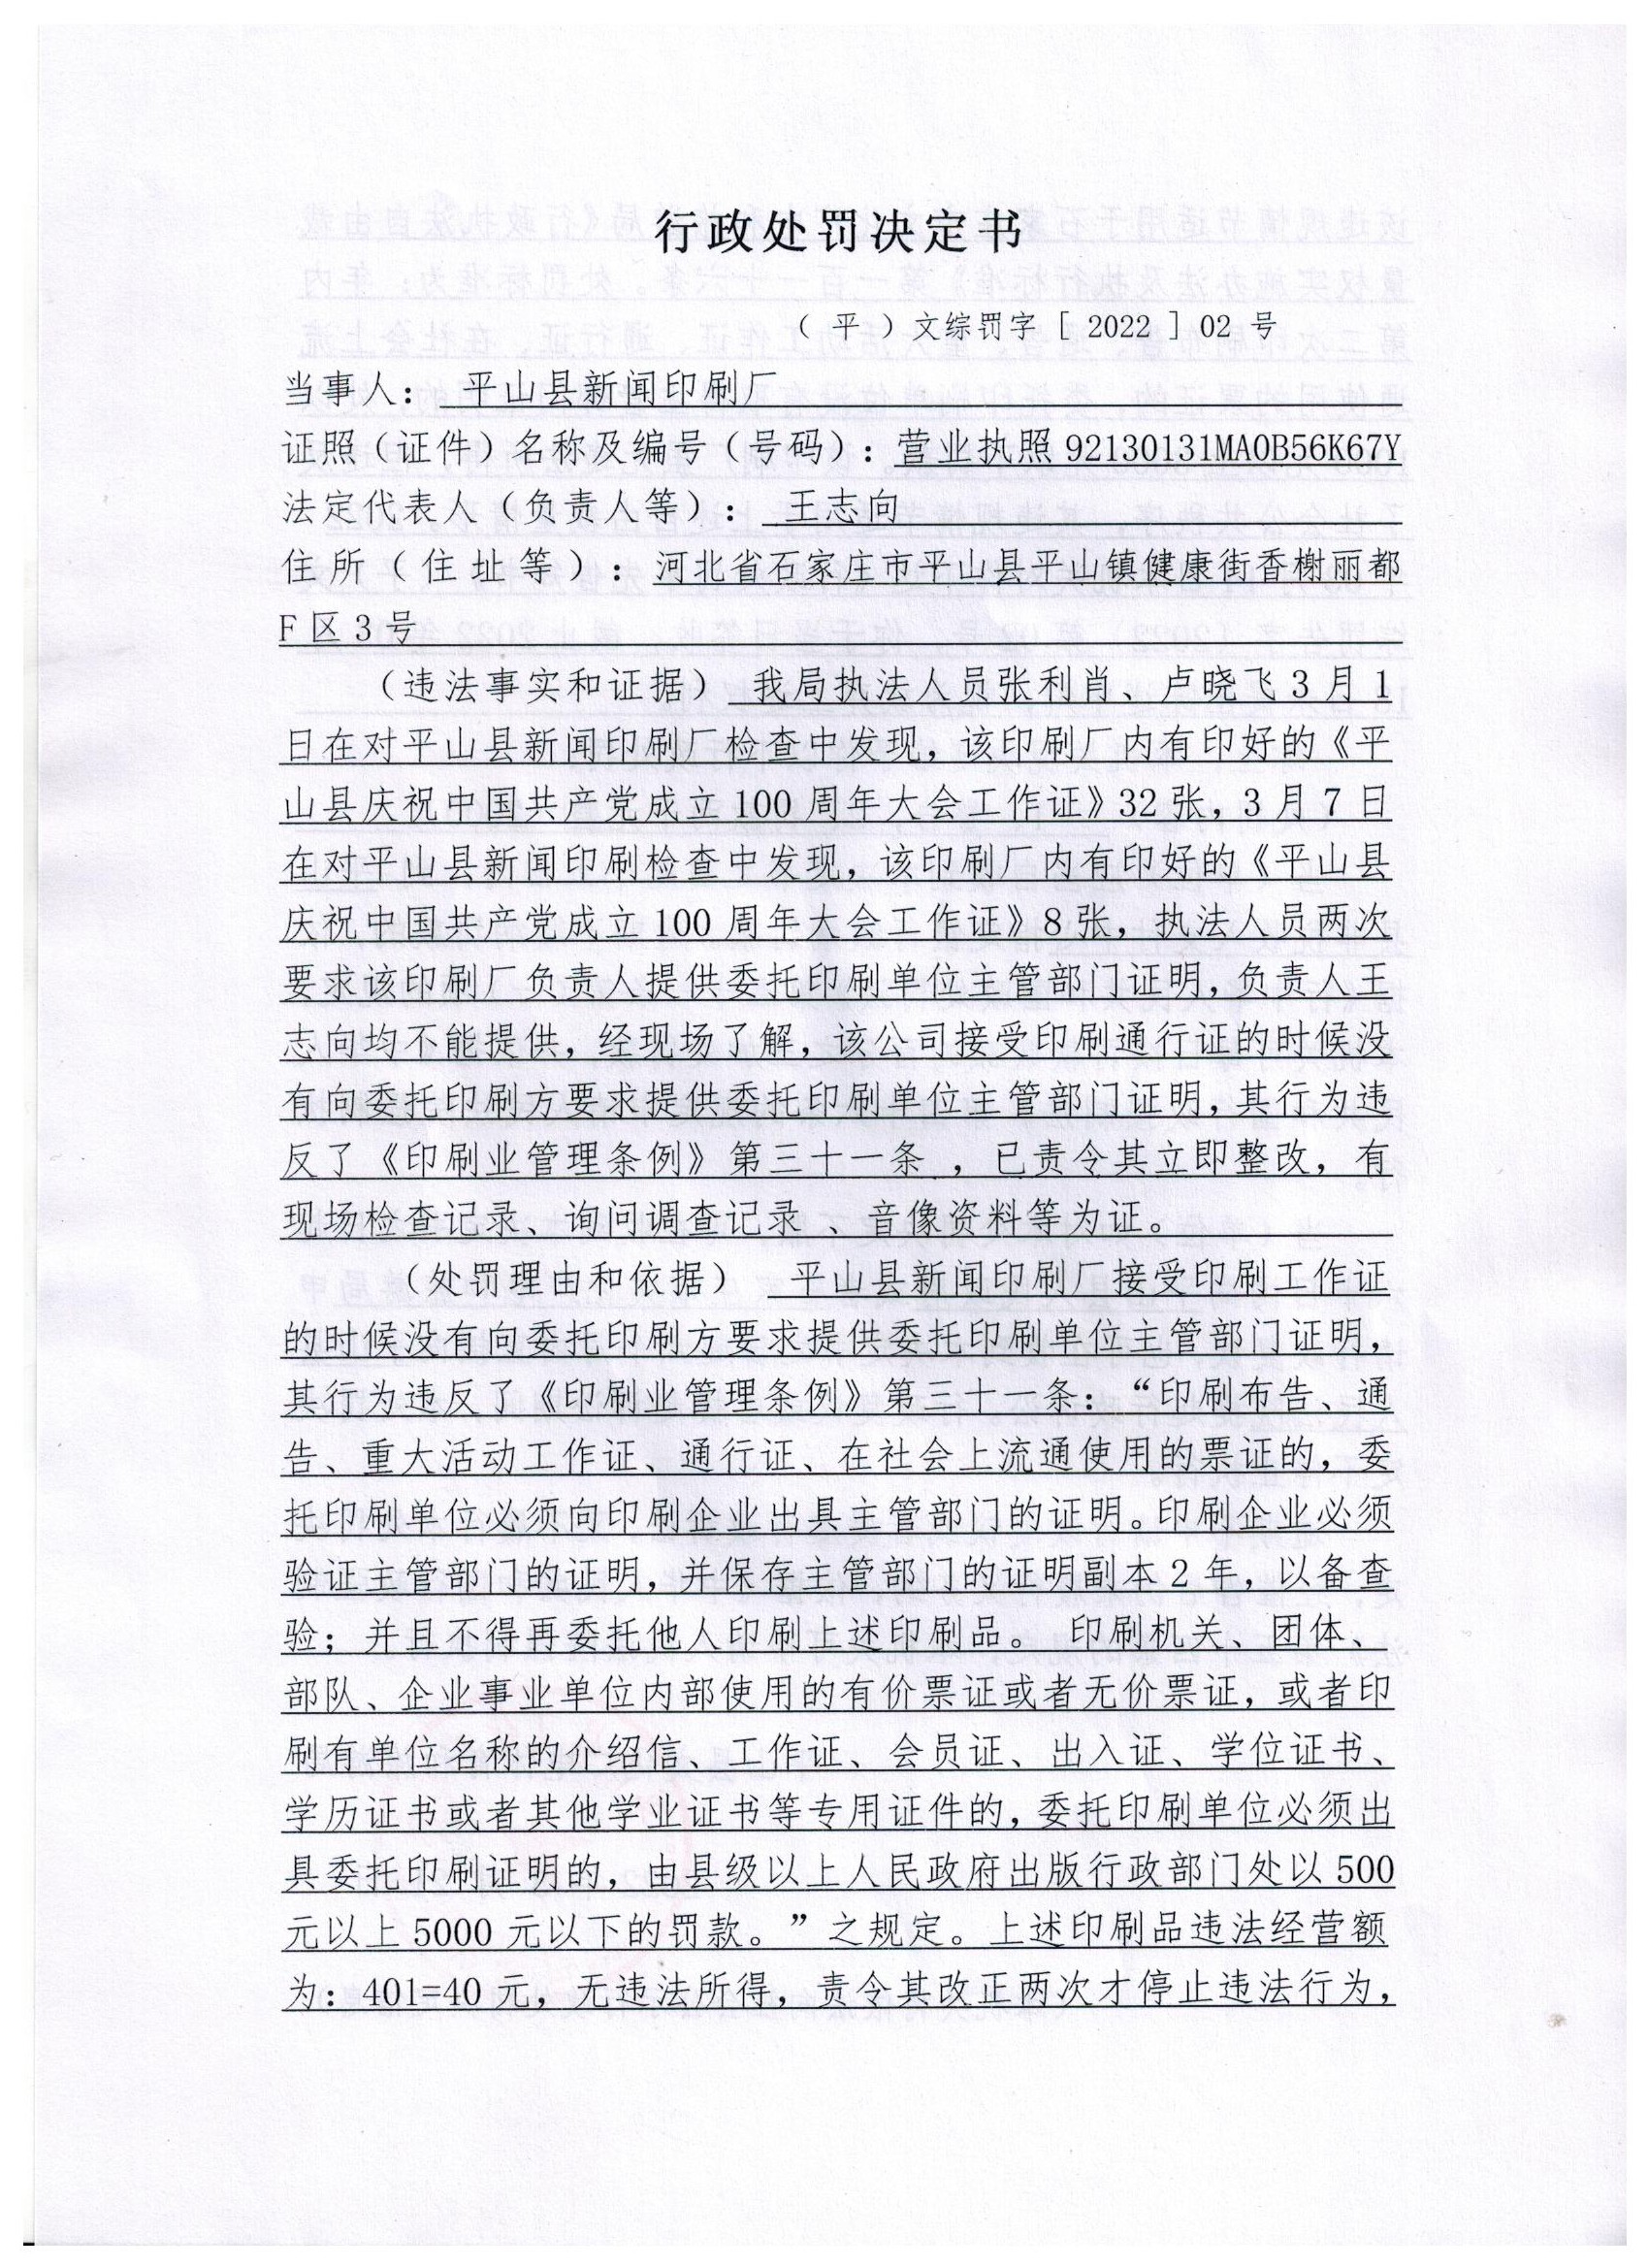 行政处罚决定书
（平）文综罚字［2022］02 号
当事人： 平山县新闻印刷厂
证照（证件）名称及编号（号码）：营业执照 92130131MA0B56K67Y
法定代表人（负责人等）： 王志向
住所（住址等）：河北省石家庄市平山县平山镇健康街香榭丽都
F 区 3 号
（违法事实和证据） 我局执法人员张利肖、卢晓飞 3 月 1
日在对平山县新闻印刷厂检查中发现，该印刷厂内有印好的《平
山县庆祝中国共产党成立 100 周年大会工作证》32 张，3 月 7 日
在对平山县新闻印刷检查中发现，该印刷厂内有印好的《平山县
庆祝中国共产党成立 100 周年大会工作证》8 张，执法人员两次
要求该印刷厂负责人提供委托印刷单位主管部门证明，负责人王
志向均不能提供，经现场了解，该公司接受印刷通行证的时候没
有向委托印刷方要求提供委托印刷单位主管部门证明，其行为违
反了《印刷业管理条例》第三十一条 ，已责令其立即整改，有
现场检查记录、询问调查记录 、音像资料等为证。
（处罚理由和依据） 平山县新闻印刷厂接受印刷工作证
的时候没有向委托印刷方要求提供委托印刷单位主管部门证明，
其行为违反了《印刷业管理条例》第三十一条：“印刷布告、通
告、重大活动工作证、通行证、在社会上流通使用的票证的，委
托印刷单位必须向印刷企业出具主管部门的证明。印刷企业必须
验证主管部门的证明，并保存主管部门的证明副本 2 年，以备查
验；并且不得再委托他人印刷上述印刷品。 印刷机关、团体、
部队、企业事业单位内部使用的有价票证或者无价票证，或者印
刷有单位名称的介绍信、工作证、会员证、出入证、学位证书、
学历证书或者其他学业证书等专用证件的，委托印刷单位必须出
具委托印刷证明的，由县级以上人民政府出版行政部门处以 500
元以上 5000 元以下的罚款。”之规定。上述印刷品违法经营额
为：401=40 元，无违法所得，责令其改正两次才停止违法行为，